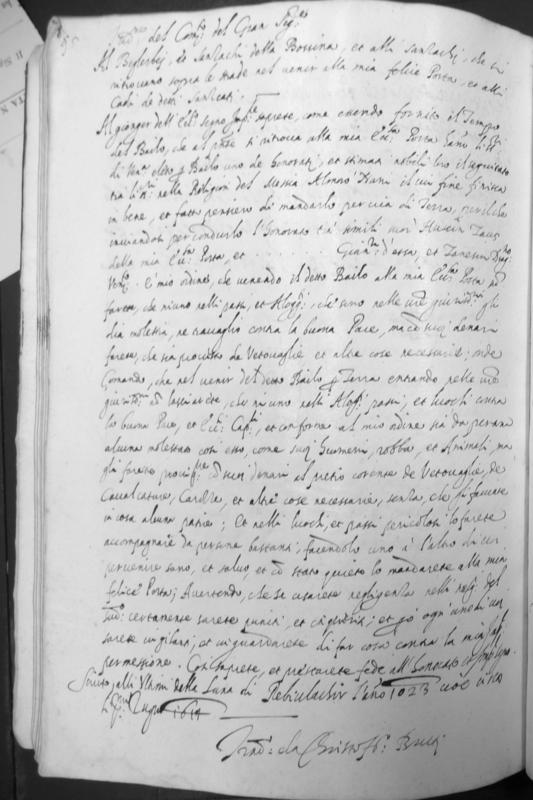 del Com.to del Gran Sig.re
Al Beglerbej, et Sanzachi della Bossina, et alli Sanzachi, che si
ritrovano sopra le strade nel venir alla mia felice Porta, et alli
Cadi de detti Sanzacati.
Al gionger dell' Ecc.o segno Imp.le saprete, come essendo fornito il Tempo
del Bailo, che al presente si ritrova alla mia Ecc.sa Porta
di Ven.a eletto p Bailo uno de honorati, et stimati nobili suo il seguitato
tra li nella Religion del Messia Almorò Nani il cui fine finisca
in bene, et fatto pensiero di mandarlo per via di Terra, per il che
inviandosi per condurlo l'honorato tra simili suoi Husein Zaus
della mia Ecc.sa Porta, et . . . . . . . Gian.ro d'essa, et
Ven.o: È mio ordine, che venendo il detto Bailo alla mia Ecc.sa Porta
farete, che niuno nelli passi, et Alogg.i, che sono nelle vostre giurisd.ni gli
dia molestia, ne travaglio contra la buona Pace, ma co' suoi denari
farete, che sia provisto de Vetovaglie et altre cose necessarie; onde
Comando, che nel venir del detto Bailo p Terra entrando nelle vostre
giurisd.ni non lasciarete, che niuno nelli Alogg.i passi, et luochi contra
la buona Pace, et Ecc.i Cap.li, et conforme al mio ordine sia da persona
alcuna molestato così esso, come suoi huomeni, robba, et Animali, ma
gli farete provis.ne co' suoi denari al pretio corrente de Vetovaglie, de
Cavalcature, Carozze, et altre cose necessarie, senza, che li facciate
in cosa alcuna patire; Et nelli luochi, et passi pericolosi lo farete
accompagnare da persone bastanti, facendolo uno à l'altro di voi
pervenire sano, et salvo, et co' stato quieto lo mandarete alla mia
felice Porta; Avertendo, che se usarete negligenza nelli neg.i del
sud.o certamente sarete puniti, et castigati; et però ogn'uno di voi
sarete vigilanti, et vi guardarete di far cosa contra la mia
permissione. Così saprete, et prestarete fede all'honorato segno
Scritto alli Ultimi della Luna di Rebiulachir l'año 1023 cioè circa
Li Zugno 1614
Trad.e da Christof.o Bruti